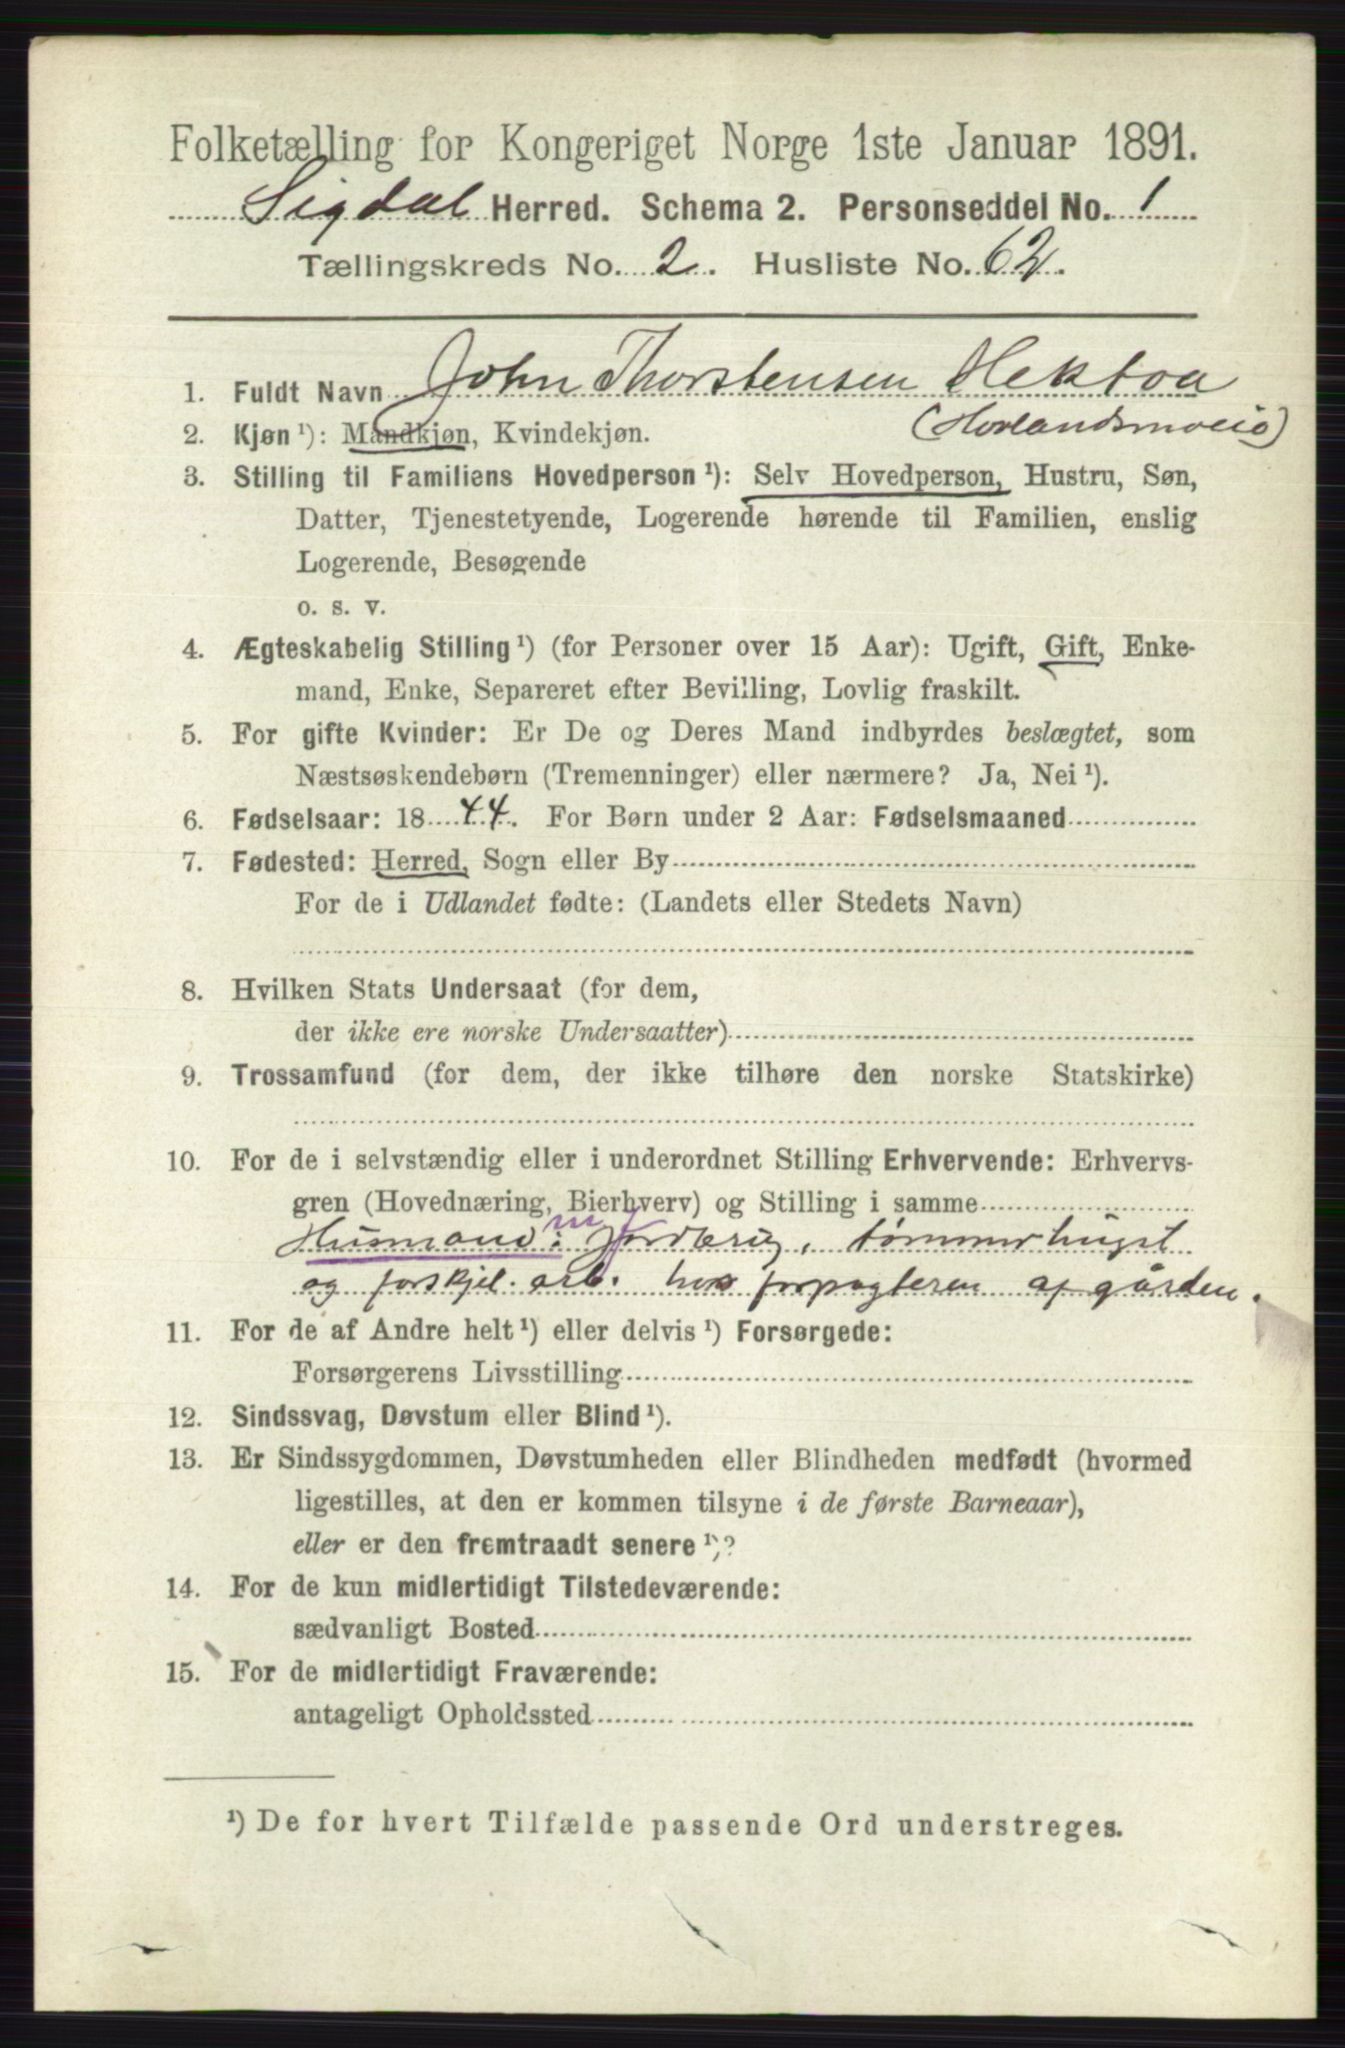 Folketælling for Kongeriget Norge 1ste Januar 1891.
Sigdal Herred. Schema 2. Personseddel No. 1
Tællingskreds No. 2. Husliste No. 62.
1. Fuldt Navn John Thorstensen Hektoa
2. Kjøn¹): Mandkjøn, Kvindekjøn.
3. Stilling til Familiens Hovedperson¹): Selv Hovedperson, Hustru, Søn,
Datter, Tjenestetyende, Logerende hørende til Familien, enslig
Logerende, Besøgende
o. s. v.
4. Ægteskabelig Stilling¹) (for Personer over 15 Aar): Ugift, Gift, Enke-
mand, Enke, Separeret efter Bevilling, Lovlig fraskilt.
5. For gifte Kvinder: Er De og Deres Mand indbyrdes beslægtet, som
Næstsøskendebørn (Tremenninger) eller nærmere? Ja, Nei¹).
6. Fødselsaar: 1844. For Børn under 2 Aar: Fødselsmaaned
7. Fødested: Herred, Sogn eller By
For de i Udlandet fødte: (Landets eller Stedets Navn)
8. Hvilken Stats Undersaat (for dem,
der ikke ere norske Undersaatter)
9. Trossamfund (for dem, der ikke tilhøre den norske Statskirke)
10. For de i selvstændig eller i underordnet Stilling Erhvervende: Erhvervs-
gren (Hovednæring, Bierhverv) og Stilling i samme
Husmand: m J Jordbrug, tømmerhugst
og forskjel. arb. hos forpagteren af gården.
11. For de af Andre helt¹) eller delvis¹) Forsørgede:
Forsørgerens Livsstilling
12. Sindssvag, Døvstum eller Blind¹).
13. Er Sindssygdommen, Døvstumheden eller Blindheden medfødt (hvormed
ligestilles, at den er kommen tilsyne i de første Barneaar),
eller er den fremtraadt senere¹)?
14. For de kun midlertidigt Tilstedeværende:
sædvanligt Bosted
15. For de midlertidigt Fraværende:
antageligt Opholdssted
¹) De for hvert Tilfælde passende Ord understreges.